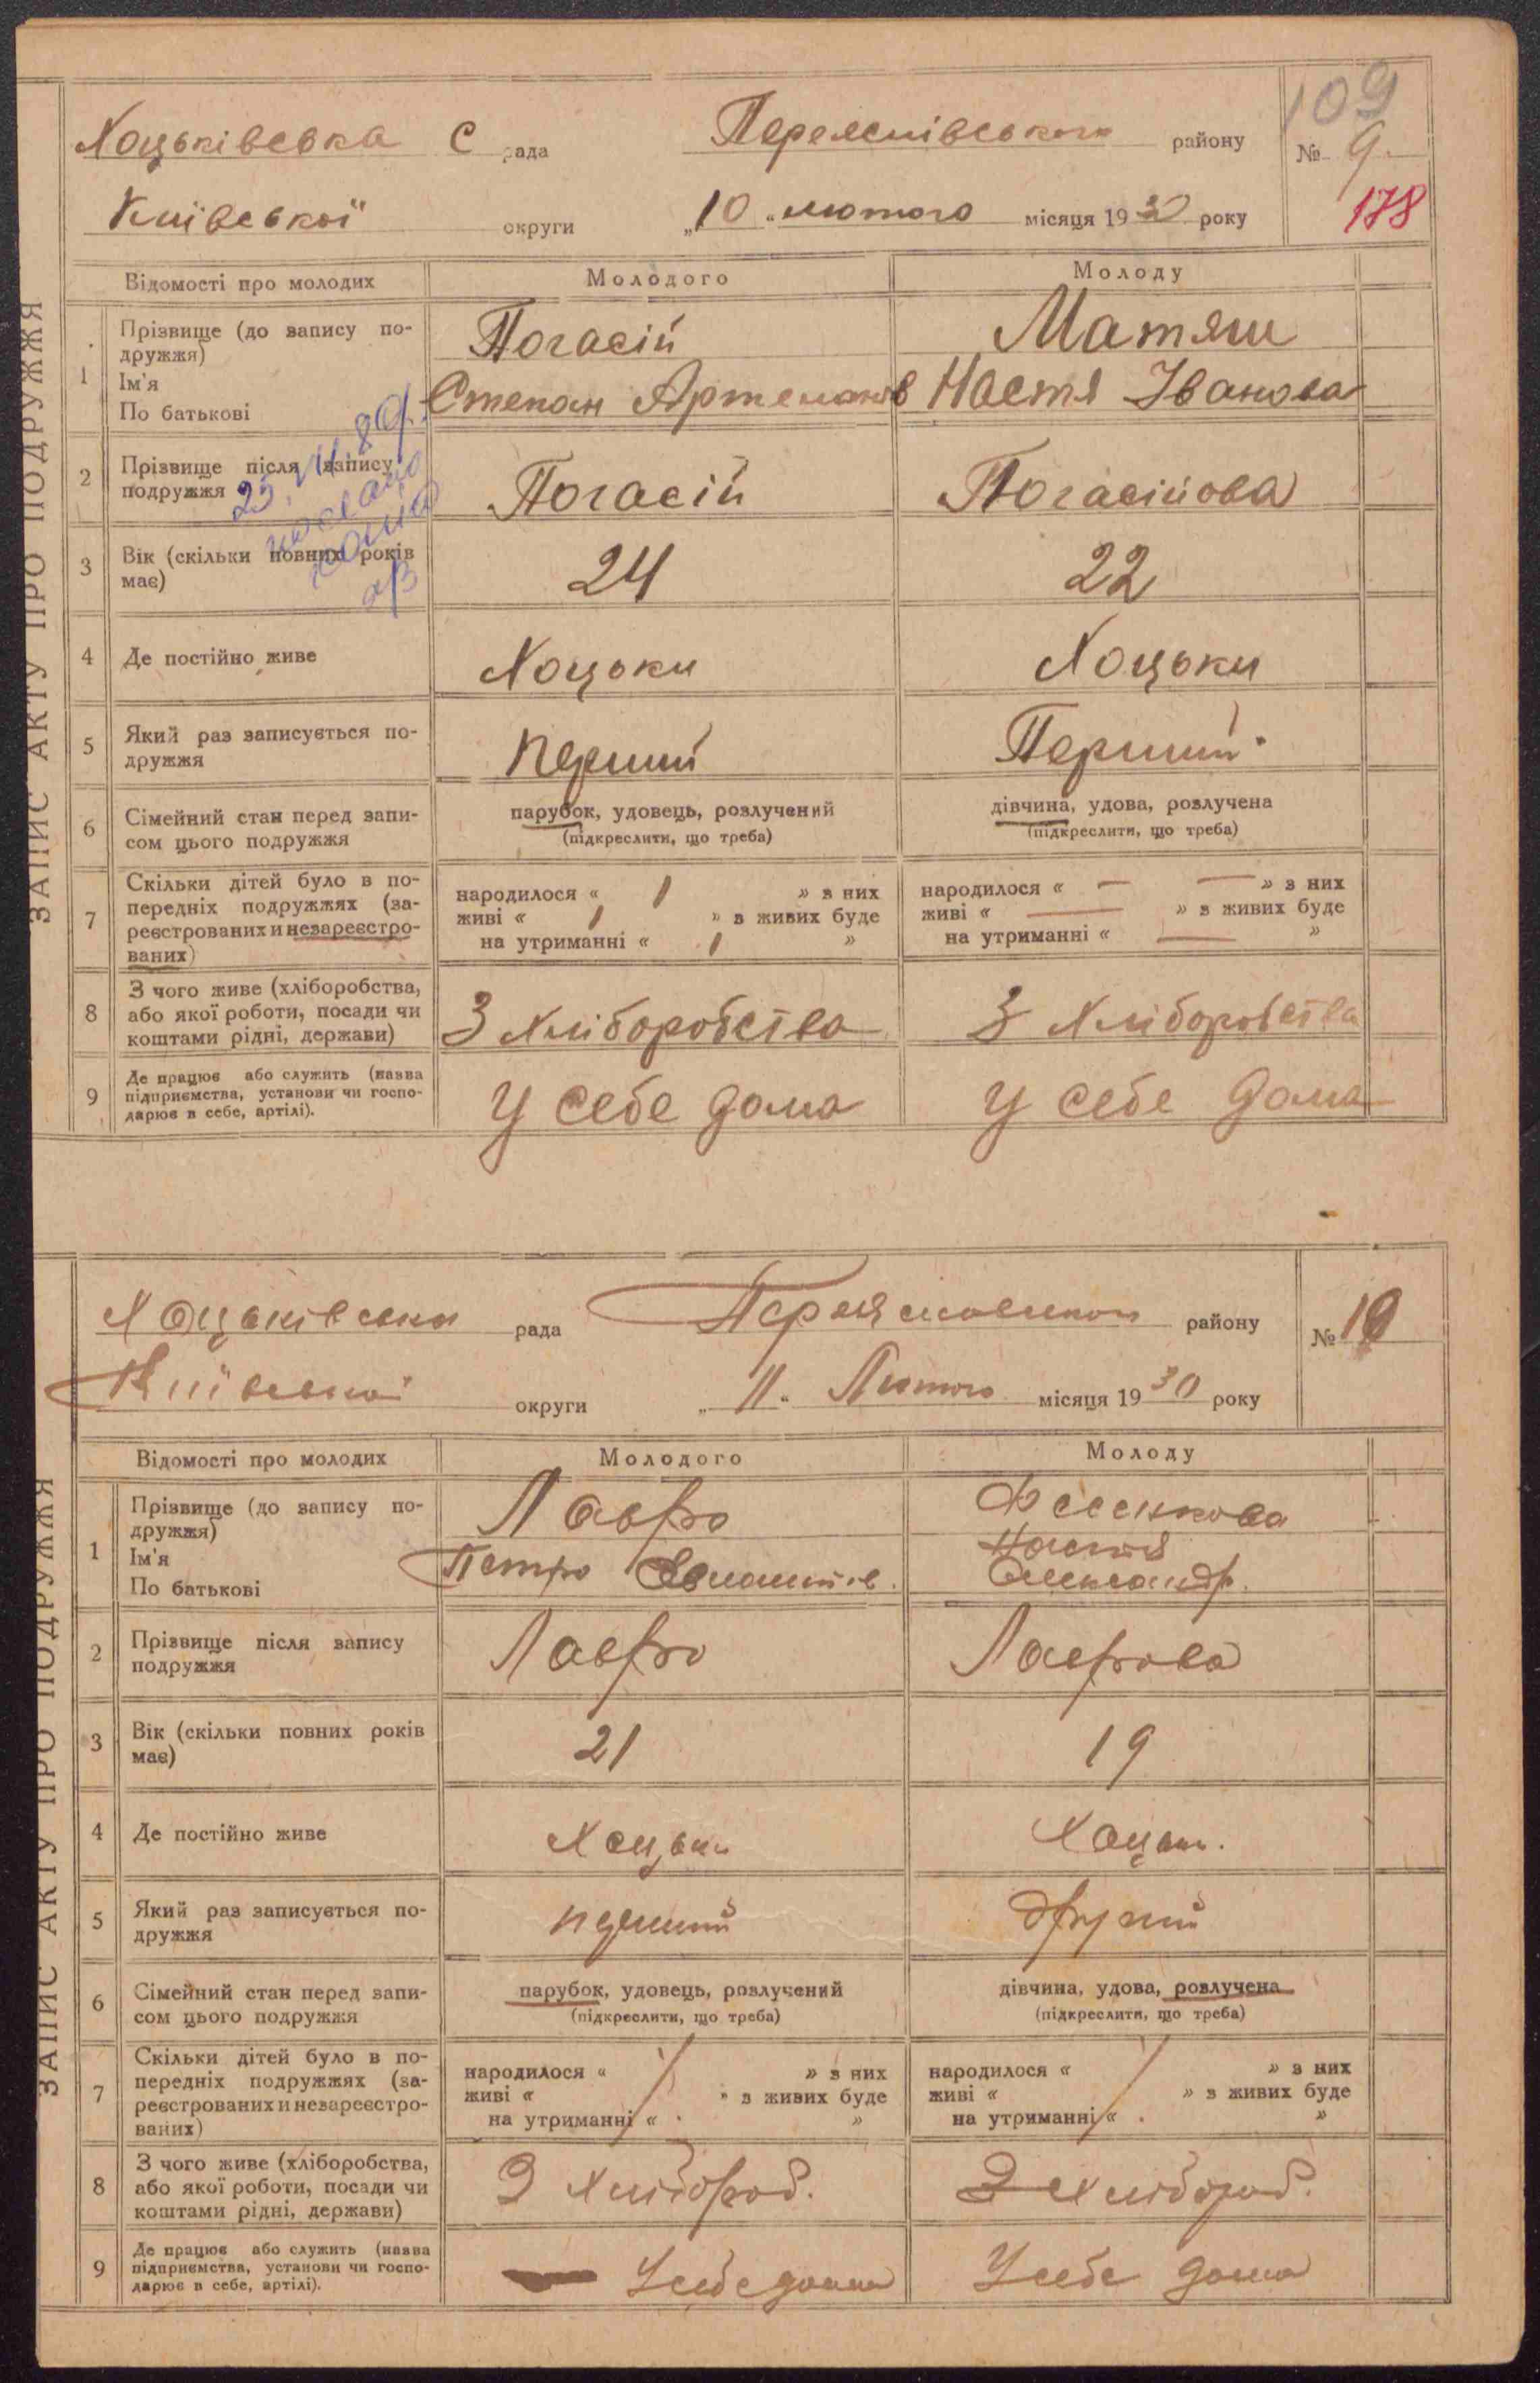 109
Хоцьківська С рада Переяслівського району № 9.
Київської округи „10 “ лютого місяця 1930 року 178
ЗАПИС АКТУ ПРО ПОДРУЖЖЯ
Відомості про молодих Молодого Молоду
1 Прізвище (до запису по-
дружжя)
Ім'я
По батькові
Погасій Матяш
Степан Артемонів Настя Іванова
2 Прізвище після запису
подружжя
Погасій Погасійова
3 Вік (скільки повних років
має)
24 22
4 Де постійно живе Хоцьки Хоцьки
5 Який раз записується по-
дружжя
перший Перший
6 Сімейний стан перед запи-
сом цього подружжя
парубок, удовець, розлучений дівчина, удова, розлучена
(підкреслити, що треба) (підкреслити, що треба)
7 Скільки дітей було в по-
передніх подружжях (за-
реєстрованих и незареєстро-
ваних)
народилося « 1 » з них народилося « — — » з них
живі « 1 » з живих буде живі « — » з живих буде
на утриманні « 1 » на утриманні « — »
8 З чого живе (хліборобства,
або якої роботи, посади чи
коштами рідні, держави)
З Хліборобства З Хліборобства
9 Де працює або служить (назва
підприємства, установи чи госпо-
дарює в себе, артілі).
У себе дома У себе дома
Хоцьківська рада району № 10
Київської округи „ 11 “ Лютого місяця 1930 року
ЗАПИС АКТУ ПРО ПОДРУЖЖЯ
Відомості про молодих Молодого Молоду
1 Прізвище (до запису по-
дружжя)
Ім'я
По батькові
Лавро Фесенкова
Петро Настя
Олександр.
2 Прізвище після запису
подружжя
Лавро Лаврова
3 Вік (скільки повних років
має)
21 19
4 Де постійно живе Хоцьки Хоцьки.
5 Який раз записується по-
дружжя
перший другий
6 Сімейний стан перед запи-
сом цього подружжя
парубок, удовець, розлучений дівчина, удова, розлучена
(підкреслити, що треба) (підкреслити, що треба)
7 Скільки дітей було в по-
передніх подружжях (за-
реєстрованих и незареєстро-
ваних)
народилося « » з них народилося « » з них
живі « » з живих буде живі « » з живих буде
на утриманні « » на утриманні « »
8 З чого живе (хліборобства,
або якої роботи, посади чи
коштами рідні, держави)
З Хлібороб. З Хлібороб.
9 Де працює або служить (назва
підприємства, установи чи госпо-
дарює в себе, артілі).
У себе дома У себе дома